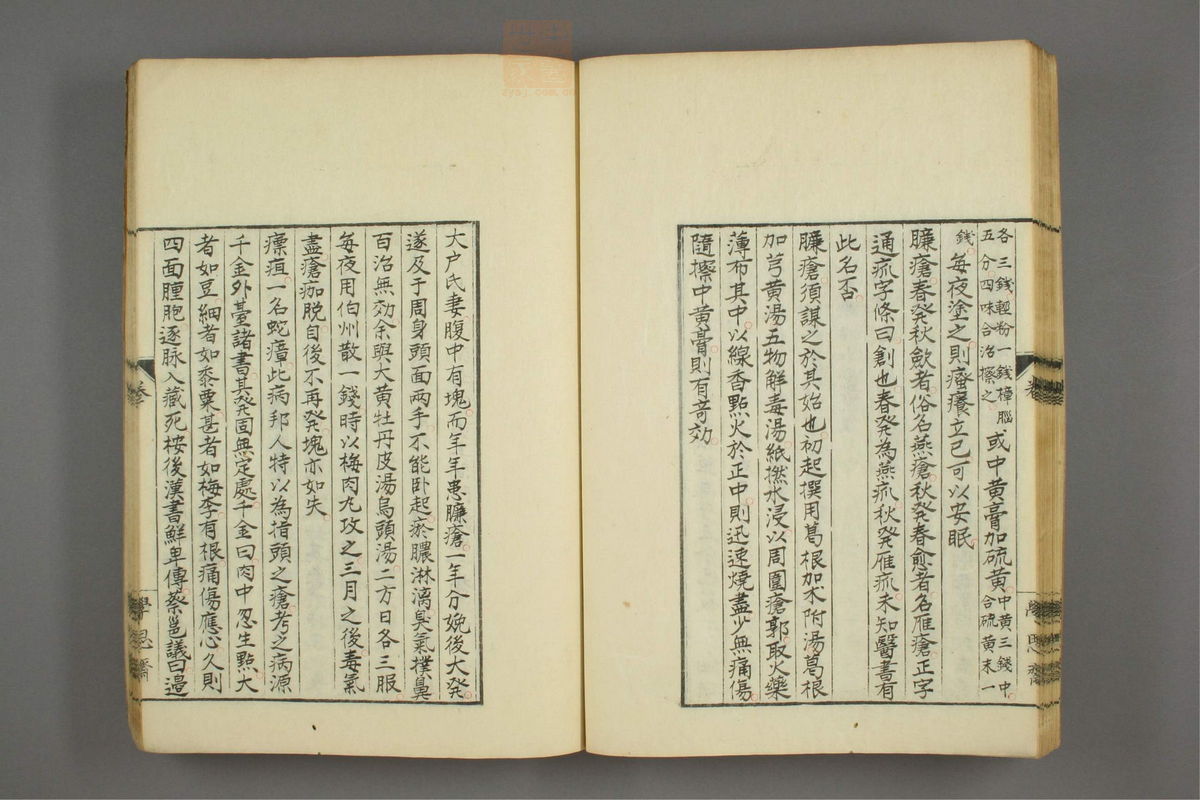 各三錢輕粉一錢樟腦
五分四味合治擦之
或中黃膏加硫黃
中黃三錢中
合硫黃末一
錢
每夜塗之則瘙癢立已可以安眠
臁瘡春発秋歛者俗名燕瘡秋発春愈者名雁瘡正字
通疷字條曰創也春発為燕疷秋発雁疷未知醫書有
此名否
臁瘡須謀之於其始也初起撰用葛根加朮附湯葛根
加芎黃湯五物解毒湯紙撚水浸以周圍瘡郭取火藥
薄布其中以線香點火於正中則迅速燒盡少無痛傷
隨擦中黃膏則有奇効
大户氏妻腹中有塊而年年患臁瘡一年分娩後大発
遂及于周身頭面兩手不能卧起瘀膿淋漓臭氣撲鼻
百治無効余與大黃牡丹皮湯烏頭湯二方日各三服
每夜用伯州散一錢時以梅肉丸攻之三月之後毒氣
盡瘡痂脱自後不再発塊亦如失
瘭疽一名蛇瘴此病邦人特以為指頭之瘡考之病源
千金外臺諸書其発固無定處千金曰肉中忽生點大
者如豆細者如黍粟甚者如梅李有根痛傷應心久則
四面腫胞逐脉入藏死桉後漢書鮮卑傳蔡邕議曰邉
學思齋